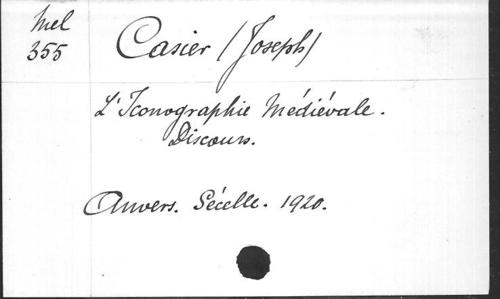 Mel
355
Casier (Joseph)
L'Iconographie Médiévale.
Discours.
Anvers. Sécelle. 1920.